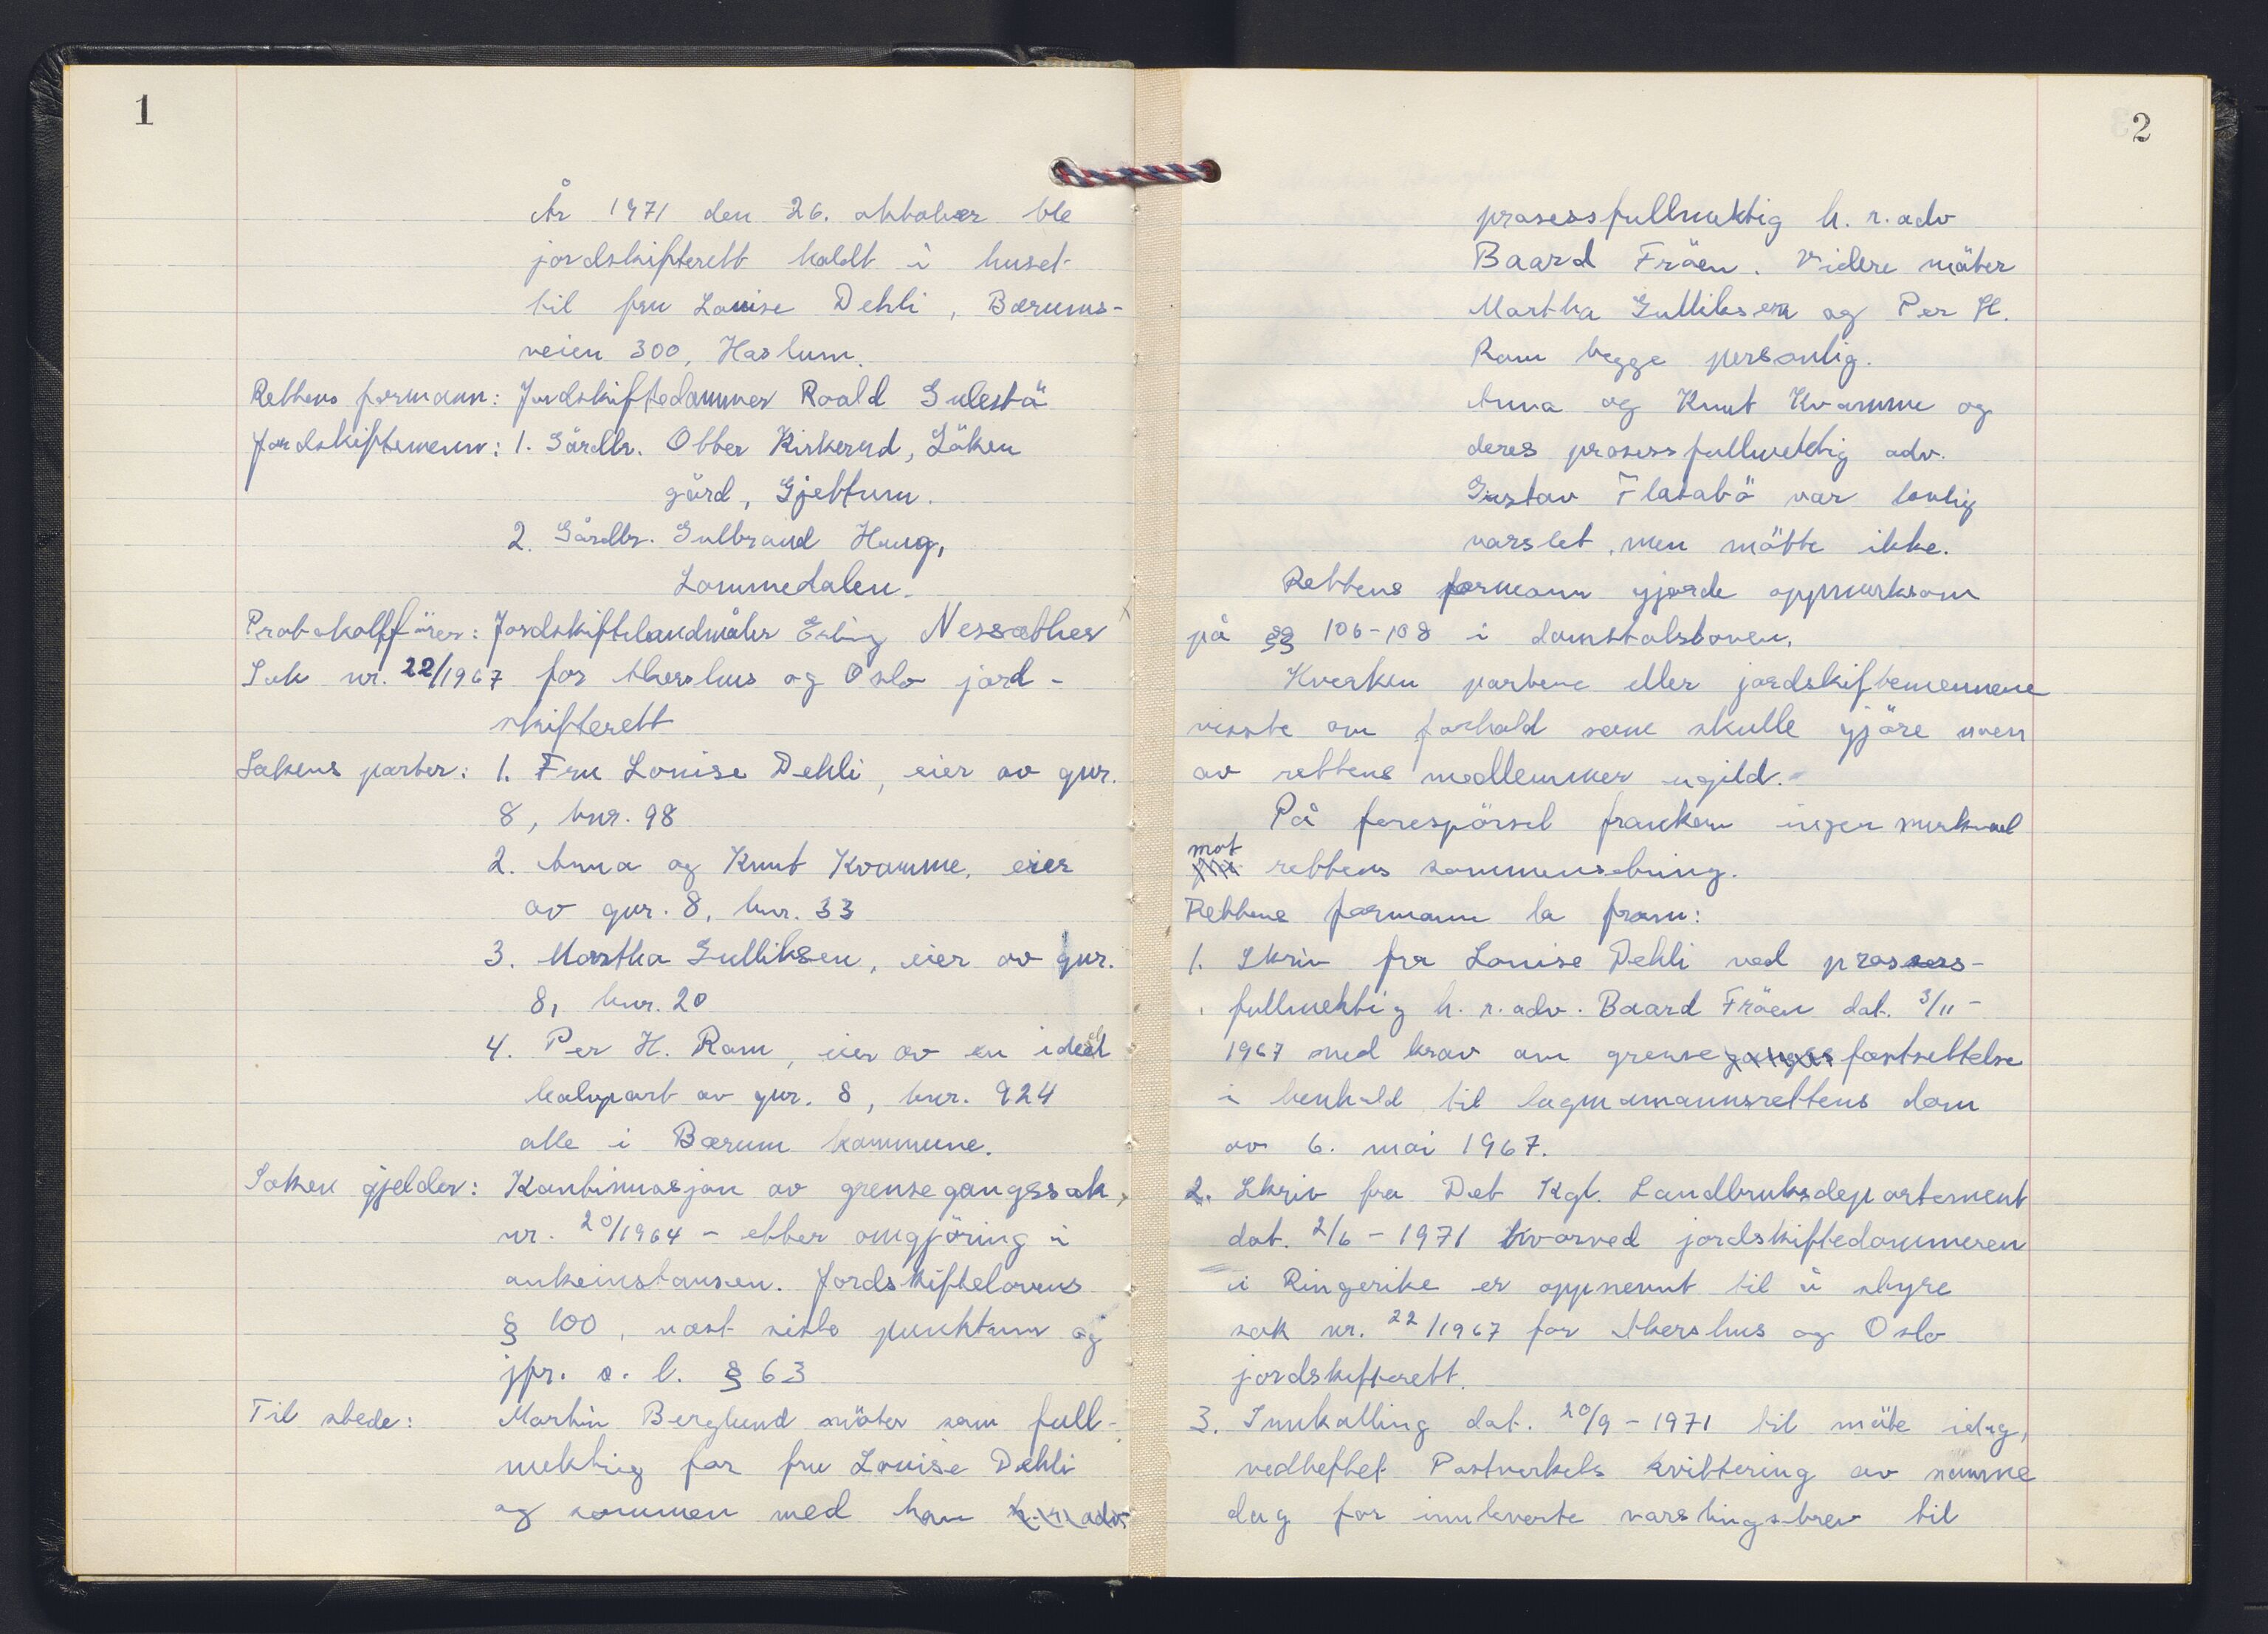 1
År 1971 den 26. oktober ble
jordskifterett holdt i huset
til fru Louise Dehli, Bærums-
veien 300, Haslum.
Rettens formann: Jordskiftedommer Roald Gulestö
Jordskiftemenn: 1. Gårdbr. Otter Kirkerud, Löken
gård, Gjettum.
2. Gårdbr. Gulbrand Haug,
Lommedalen.
Protokollförer: Jordskiftelandmåler Erling Nessæther
Sak nr. 22/1967 for Akershus og Oslo jord-
skifterett
Sakens parter: 1. Fru Louise Dehli, eier av gnr.
8, bnr. 98
2. Anna og Knut Kvamme, eier
av gnr. 8, bnr. 33
3. Martha Gulliksen, eier av gnr.
8, bnr. 20
4. Per H. Ram, eier av en ideel
halvpart av gnr. 8, bnr. 924
alle i Bærum kommune.
Saken gjelder: Kontinuasjon av grensegangssak,
nr. 20/1964 - etter omgjöring i
ankeinstansen. Jordskiftelovens
§ 100, nest siste punktum og
jfr. s. l. § 63
Til stede: Martin Berglund möter som full-
mektig for fru Louise Dehli
og sammen med ham h.r.adv.
2
prosessfullmektig h.r.adv
Baard Fröen. Videre möter
Martha Gulliksen og Per H.
Ram begge personlig.
Anna og Knut Kvamme og
deres prosessfullmektig adv.
Gustav Flatabö var lovlig
varslet, men mötte ikke.
Rettens formann gjorde oppmerksom
på §§ 106-108 i domstolsloven.
Hverken partene eller jordskiftemennene
visste om forhold som skulle gjöre noen
av rettens medlemmer ugild.
På forespörsel framkom ingen merknad
mot rettens sammensetning.
Rettens formann la fram:
1. Skriv fra Louise Dehli ved prosess-
fullmektig h.r.adv. Baard Fröen dat. 3/11-
1967 med krav om grensegangss fastsettelse
i henhold til lagmannsrettens dom
av 6. mai 1967.
2. Skriv fra Det Kgl. Landbruksdepartement
dat. 2/6-1971 hvorved jordskiftedommeren
i Ringerike er oppnevnt til å styre
sak nr. 22/1967 for Akershus og Oslo
jordskifterett.
3. Innkalling dat. 20/9-1971 til möte idag,
vedheftet Postverkets kvittering av samme
dag for innleverte varslingsbrev til